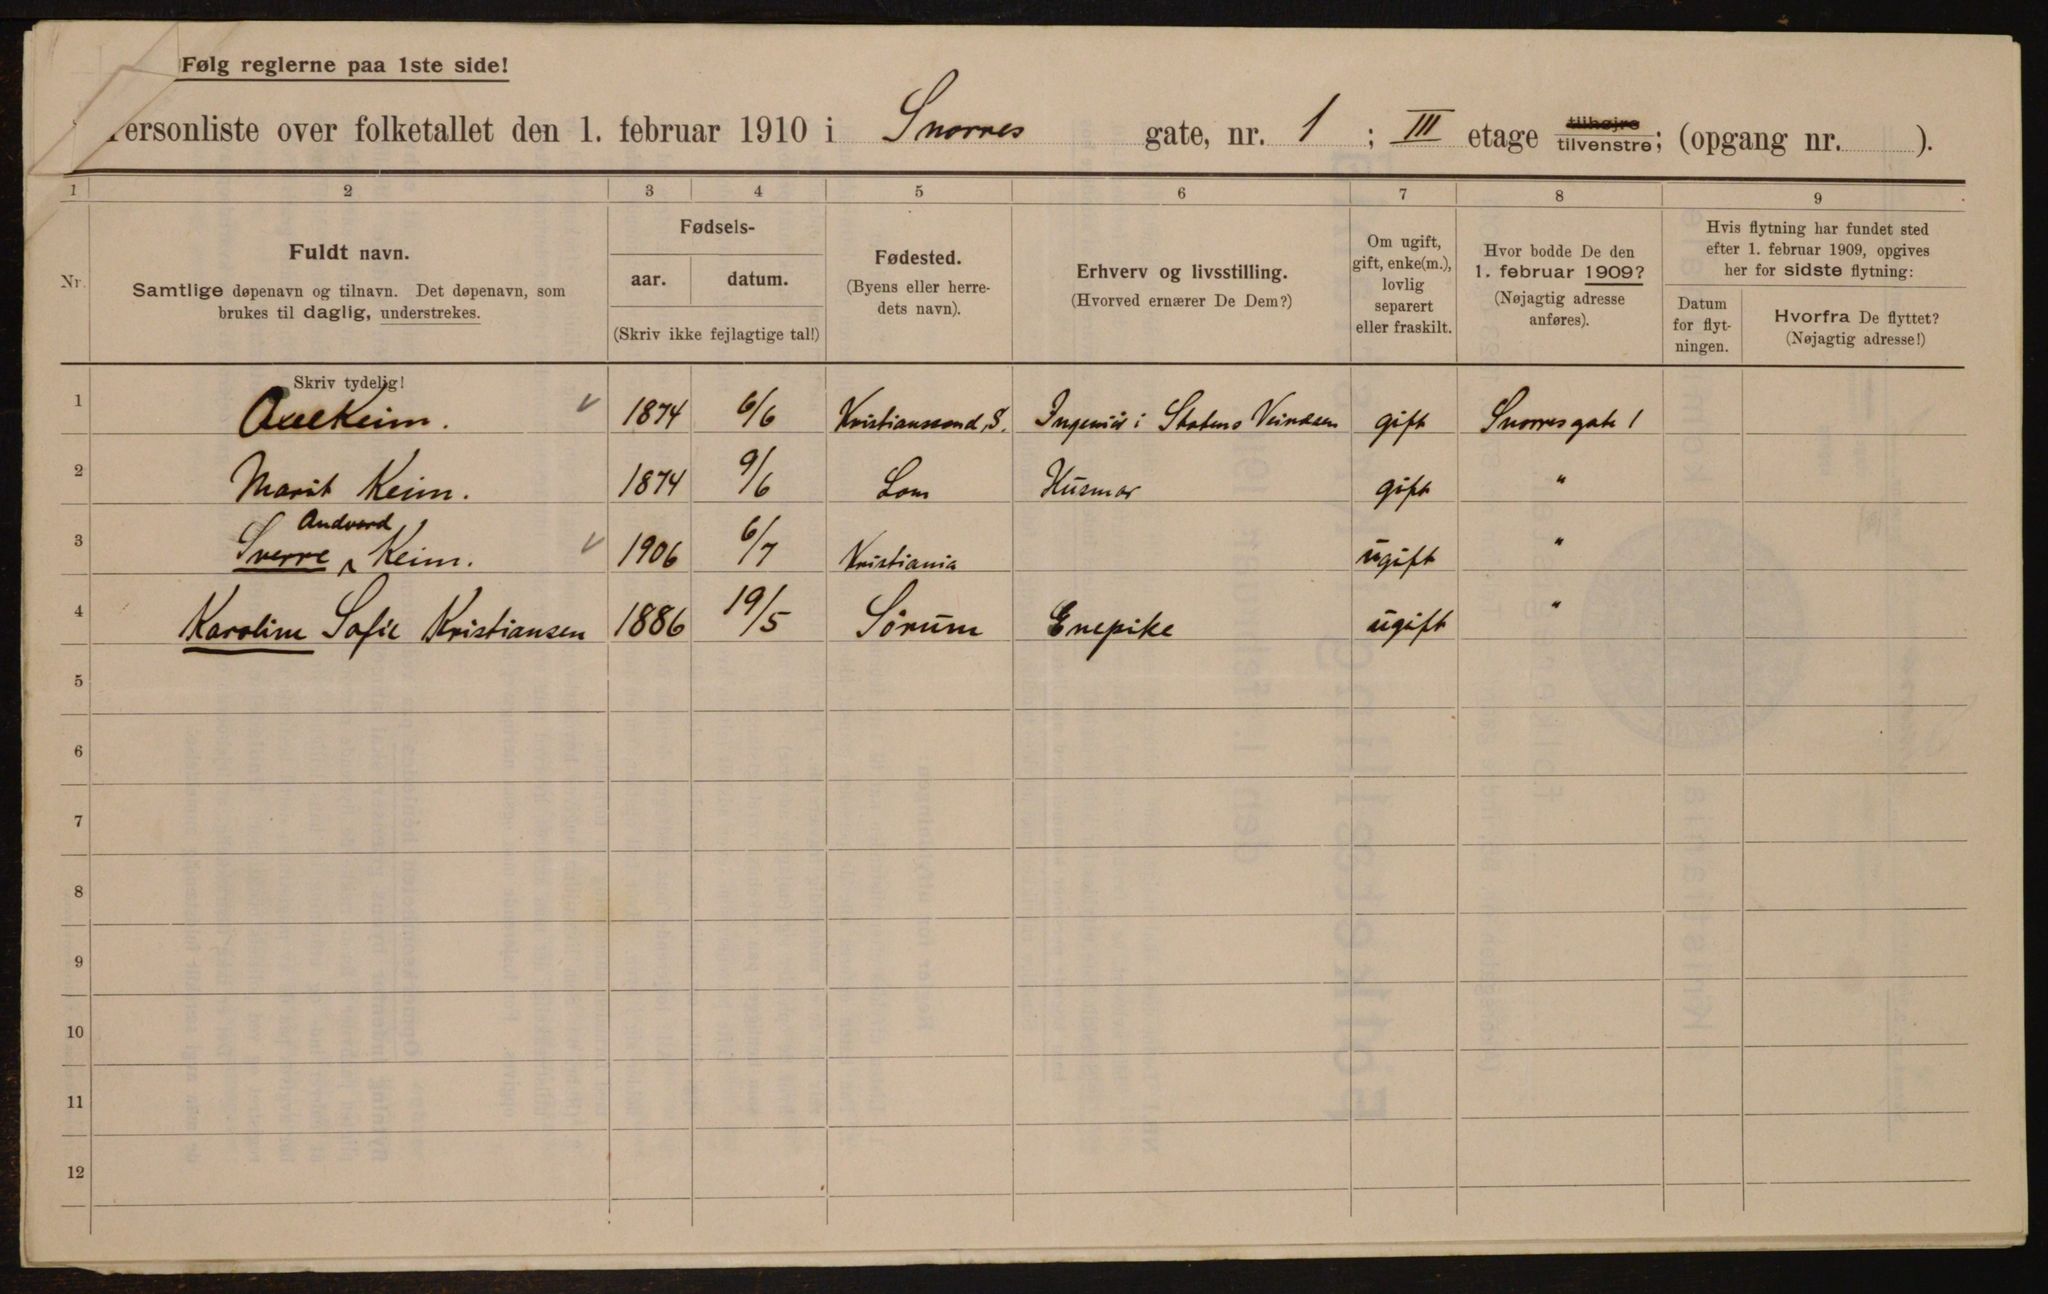 Følg reglerne paa 1ste side!
Personliste over folketallet den 1. februar 1910 i Snorres gate, nr. 1 ; III etage tilhøjre tilvenstre; (opgang nr. ).
1 2 3 4 5 6 7 8 9
Nr.
Fuldt navn.
Samtlige døpenavn og tilnavn. Det døpenavn, som
brukes til daglig, understrekes.
Fødsels-
aar. datum.
(Skriv ikke fejlagtige tal!)
Fødested.
(Byens eller herre-
dets navn).
Erhverv og livsstilling.
(Hvorved ernærer De Dem?)
Om ugift,
gift, enke(m.),
lovlig
separert
eller fraskilt.
Hvor bodde De den
1. februar 1909?
(Nøjagtig adresse
anføres).
Hvis flytning har fundet sted
efter 1. februar 1909, opgives
her for sidste flytning:
Datum
for flyt-
ningen.
Hvorfra De flyttet?
(Nøjagtig adresse!)
Skriv tydelig!
1 Axel Keim. 1874 6/6 Kristianssand S. Ingeniør i Statens Veivæsen gift Snorresgate 1
2 Marit Keim. 1874 9/6 Lom Husmor gift "
Andvord
3 Sverre Keim. 1906 6/7 Kristiania ugift "
4 Karoline Sofie Kristiansen 1886 19/5 Sørum Enepike ugift "
5
6
7
8
9
10
11
12